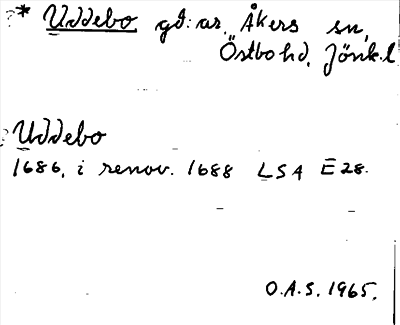 * Uddebo gd:ar, Åkers sn,
Östbo hd, Jönk.l
Uddebo
1686, i renov. 1688 LSA E 28.
O.A.S. 1965.